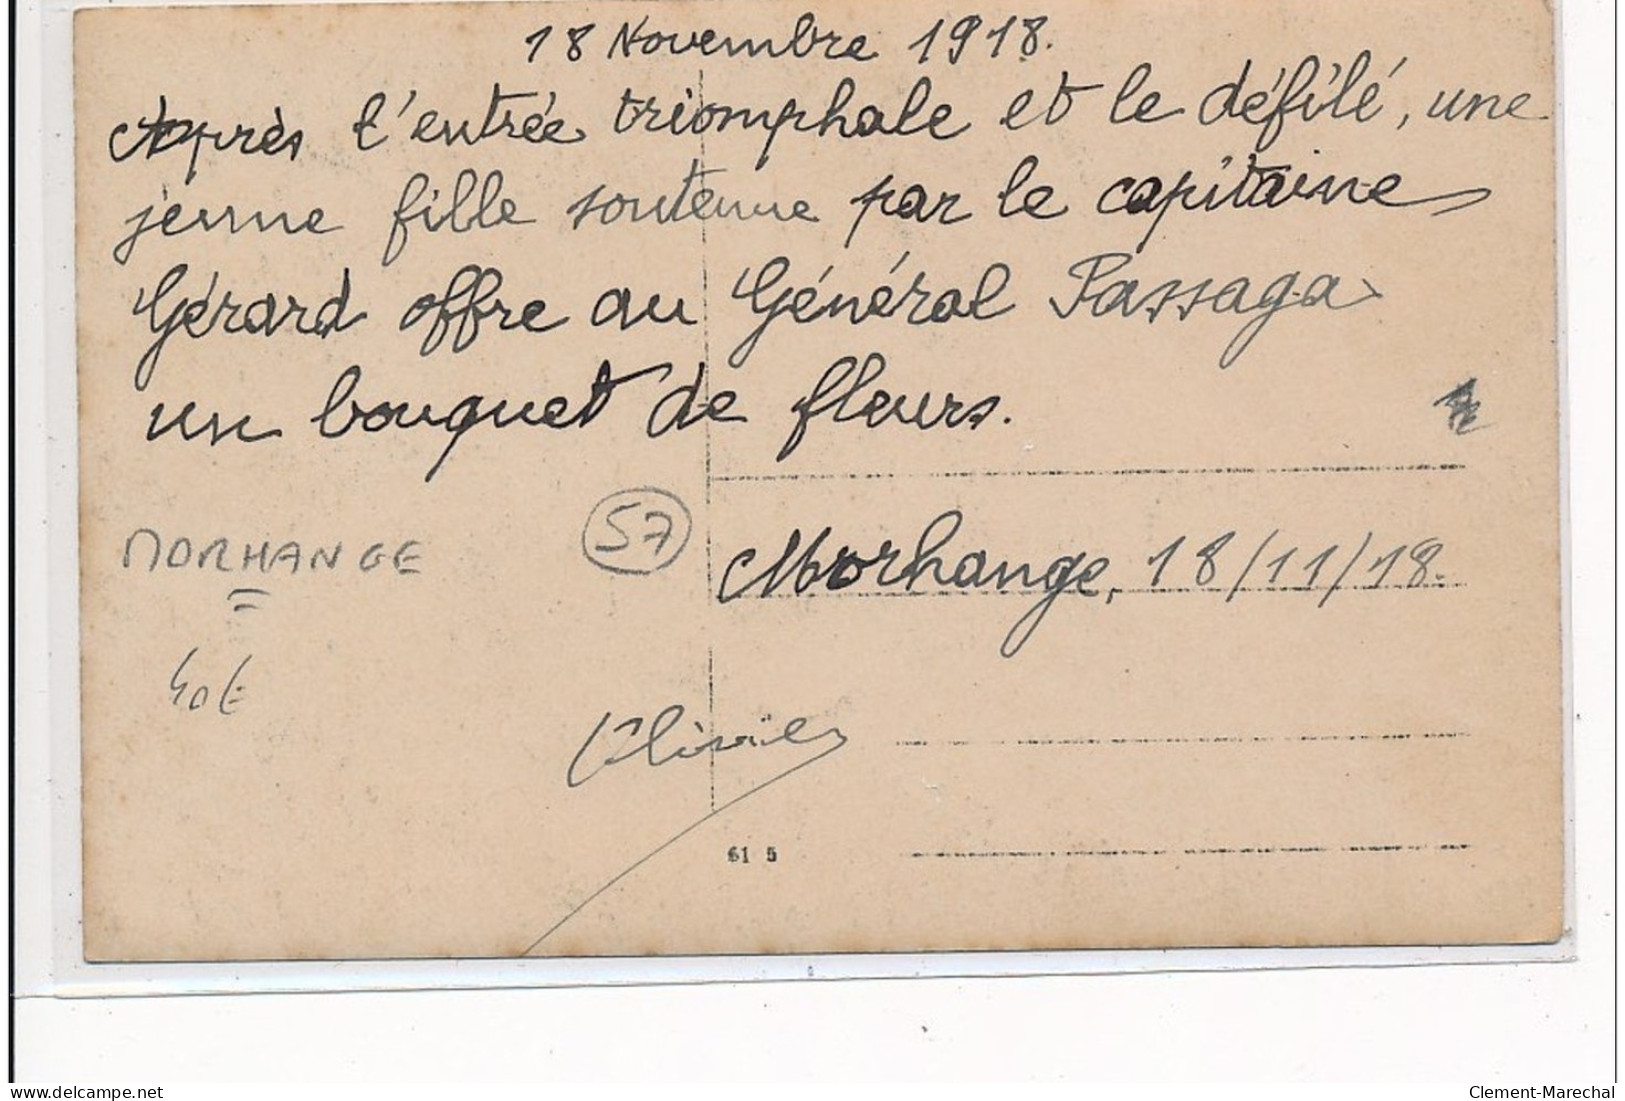 18 Novembre 1918.
Après l'entrée triomphale et le défilé, une
jeune fille soutenue par le capitaine
Gérard offre au Général Passaga
un bouquet de fleurs.
MORHANGE
57
Morhange, 18/11/18.
40€
61 5
delcampe.net
Clement-Marechal